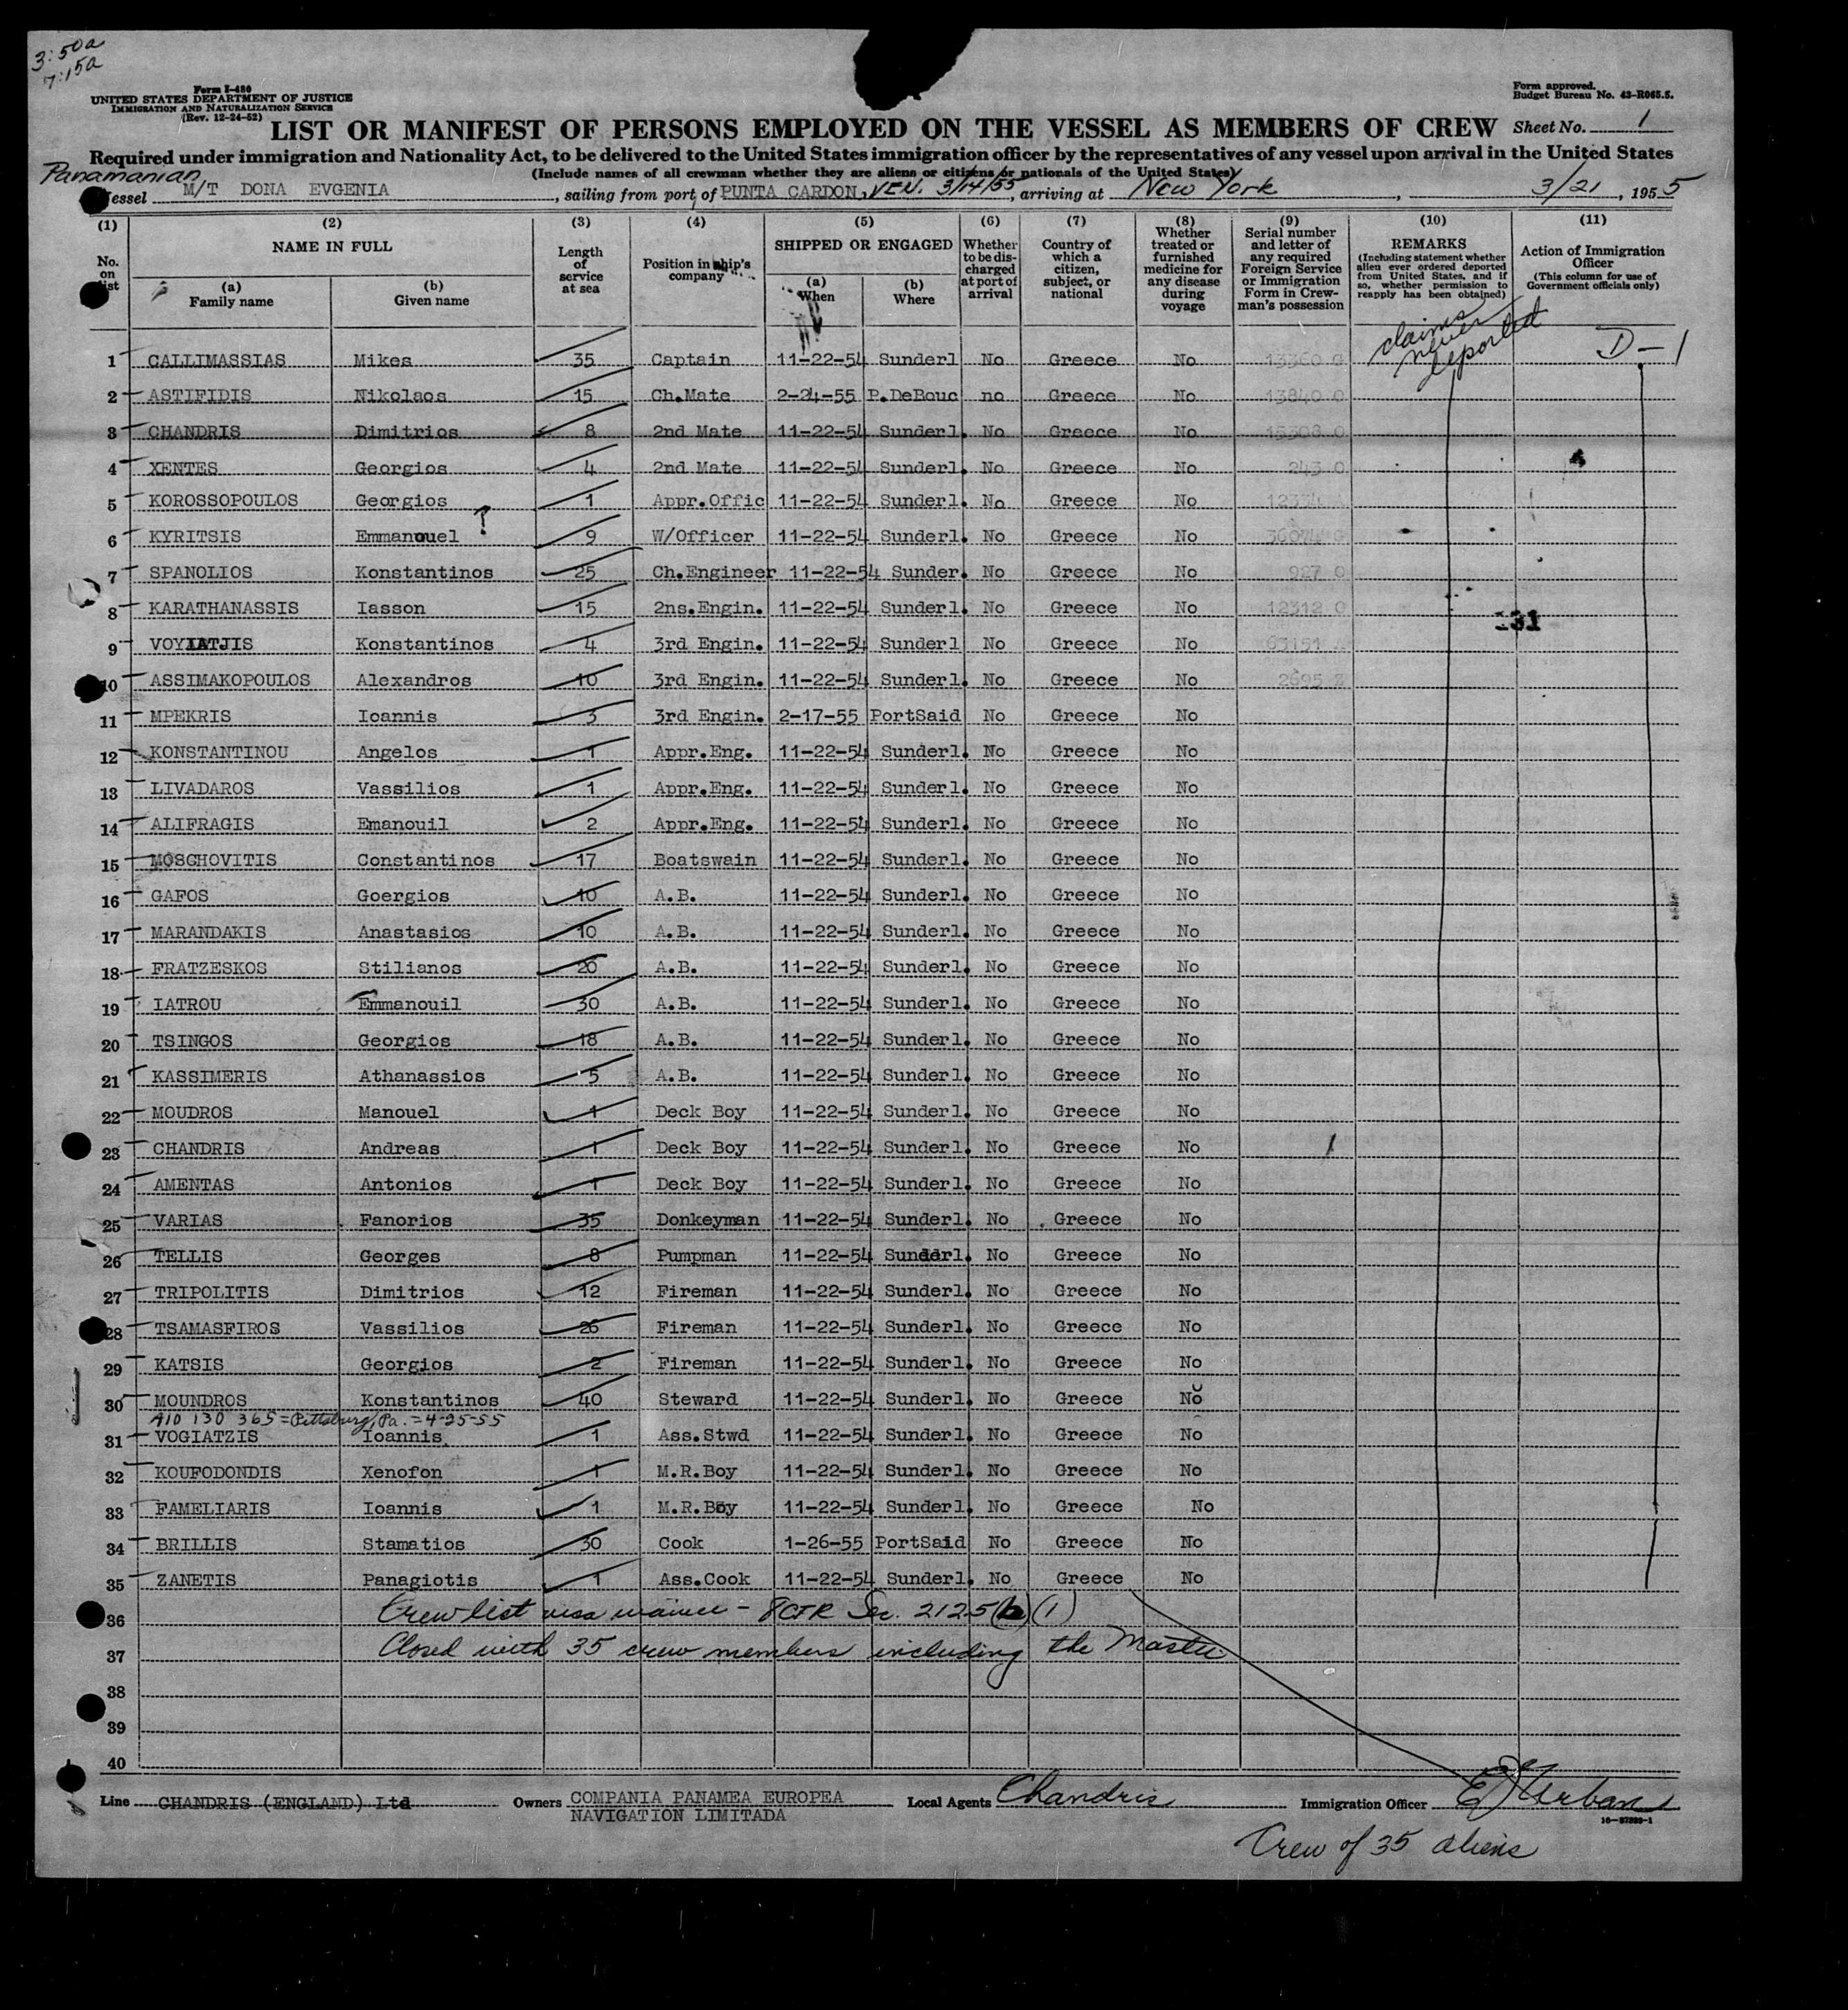 3:50a
7:15a
Form I-480
UNITED STATES DEPARTMENT OF JUSTICE
IMMIGRATION AND NATURALIZATION SERVICE
(Rev. 12-24-52)
Form approved.
Budget Bureau No. 43-R065.5.
LIST OR MANIFEST OF PERSONS EMPLOYED ON THE VESSEL AS MEMBERS OF CREW Sheet No. 1
Required under immigration and Nationality Act, to be delivered to the United States immigration officer by the representatives of any vessel upon arrival in the United States
(Include names of all crewman whether they are aliens or citizens or nationals of the United States)
Panamanian
Vessel M/T DONA EVGENIA, sailing from port of PUNTA CARDON, VEN. 3/14/55, arriving at New York, 3/21, 1955
(1) (2) (3) (4) (5) (6) (7) (8) (9) (10) (11)
No. on list
NAME IN FULL
(a) Family name
(b) Given name
Length of service at sea
Position in ship's company
SHIPPED OR ENGAGED
(a) When
(b) Where
Whether to be discharged at port of arrival
Country of which a citizen, subject, or national
Whether treated or furnished medicine for any disease during voyage
Serial number and letter of any required Foreign Service or Immigration Form in Crewman's possession
REMARKS
(Including statement whether alien ever ordered deported from United States, and if so, whether permission to reapply has been obtained)
Action of Immigration Officer
(This column for use of Government officials only)
claims never deported
1 CALLIMASSIAS Mikes 35 Captain 11-22-54 Sunderl No Greece No 13360 O D-1
2 ASTIFIDIS Nikolaos 15 Ch.Mate 2-24-55 P.DeBouc no Greece No 13840 O
3 CHANDRIS Dimitrios 8 2nd Mate 11-22-54 Sunderl. No Greece No 15308 O
4 XENTES Georgios 4 2nd Mate 11-22-54 Sunderl. No Greece No 243 O
5 KOROSSOPOULOS Georgios 1 Appr.Offic 11-22-54 Sunderl. No Greece No
6 KYRITSIS Emmanouel ? 9 W/Officer 11-22-54 Sunderl. No Greece No
7 SPANOLIOS Konstantinos 25 Ch.Engineer 11-22-54 Sunder. No Greece No 927 O
8 KARATHANASSIS Iasson 15 2ns.Engin. 11-22-54 Sunderl. No Greece No 12312 O
-31
9 VOYIATJIS Konstantinos 4 3rd Engin. 11-22-54 Sunderl No Greece No 63151
10 ASSIMAKOPOULOS Alexandros 10 3rd Engin. 11-22-54 Sunderl. No Greece No 2695 Z
11 MPEKRIS Ioannis 3 3rd Engin. 2-17-55 PortSaid No Greece No
12 KONSTANTINOU Angelos 1 Appr.Eng. 11-22-54 Sunderl. No Greece No
13 LIVADAROS Vassilios 1 Appr.Eng. 11-22-54 Sunderl. No Greece No
14 ALIFRAGIS Emanouil 2 Appr.Eng. 11-22-54 Sunderl. No Greece No
15 MOSGHOVITIS Constantinos 17 Boatswain 11-22-54 Sunderl. No Greece No
16 GAFOS Goergios 10 A.B. 11-22-54 Sunderl. No Greece No
17 MARANDAKIS Anastasios 10 A.B. 11-22-54 Sunderl. No Greece No
18 FRATZESKOS Stilianos 20 A.B. 11-22-54 Sunderl. No Greece No
19 IATROU Emmanouil 30 A.B. 11-22-54 Sunderl. No Greece No
20 TSINGOS Georgios 18 A.B. 11-22-54 Sunderl. No Greece No
21 KASSIMERIS Athanassios 5 A.B. 11-22-54 Sunderl. No Greece No
22 MOUDROS Manouel 1 Deck Boy 11-22-54 Sunderl. No Greece No
23 CHANDRIS Andreas 1 Deck Boy 11-22-54 Sunderl. No Greece No
24 AMENTAS Antonios 1 Deck Boy 11-22-54 Sunderl. No Greece No
25 VARIAS Fanorios 35 Donkeyman 11-22-54 Sunderl. No Greece No
26 TELLIS Georges 8 Pumpman 11-22-54 Sunderl. No Greece No
27 TRIPOLITIS Dimitrios 12 Fireman 11-22-54 Sunderl. No Greece No
28 TSAMASFIROS Vassilios 26 Fireman 11-22-54 Sunderl. No Greece No
29 KATSIS Georgios 2 Fireman 11-22-54 Sunderl. No Greece No
30 MOUNDROS Konstantinos 40 Steward 11-22-54 Sunderl. No Greece No
A10 130 365 = Pittsburg, Pa. = 4-25-55
31 VOGIATZIS Ioannis 1 Ass.Stwd 11-22-54 Sunderl. No Greece No
32 KOUFODONDIS Xenofon 1 M.R.Boy 11-22-54 Sunderl. No Greece No
33 FAMELIARIS Ioannis 1 M.R.Boy 11-22-54 Sunderl. No Greece No
34 BRILLIS Stamatios 30 Cook 1-26-55 PortSaid No Greece No
35 ZANETIS Panagiotis 1 Ass.Cook 11-22-54 Sunderl. No Greece No
36 Crew list visa waiver - 8 CFR Sec. 212.5(b)(1)
37 Closed with 35 crew members including the Master
38
39
40
Line CHANDRIS (ENGLAND) Ltd Owners COMPANIA PANAMEA EUROPEA NAVIGATION LIMITADA Local Agents Chandris Immigration Officer E J Urban
Crew of 35 aliens